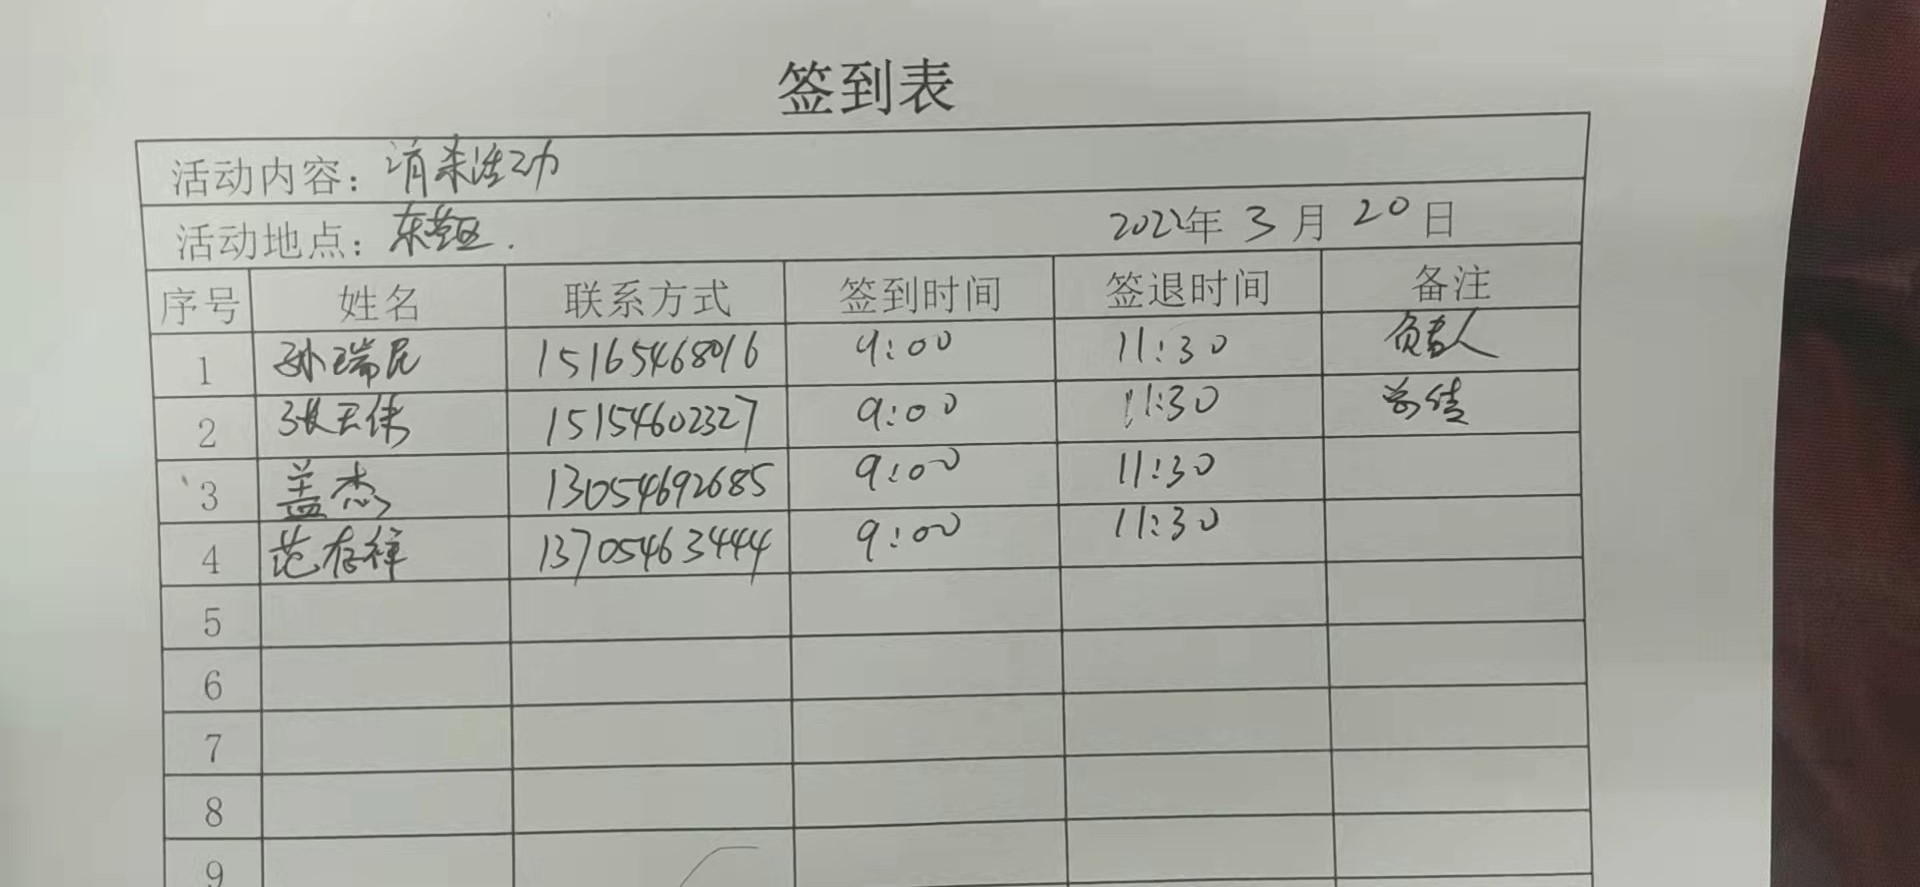 签到表
活动内容：消杀活动
活动地点：东营区. 2022年 3 月 20 日
序号 姓名 联系方式 签到时间 签退时间 备注
1 孙瑞民 15165468016 9:00 11:30 负责人
2 张天伟 15154602327 9:00 11:30
3 盖杰 13054692685 9:00 11:30
4 范存祥 13705463444 9:00 11:30
5
6
7
8
9